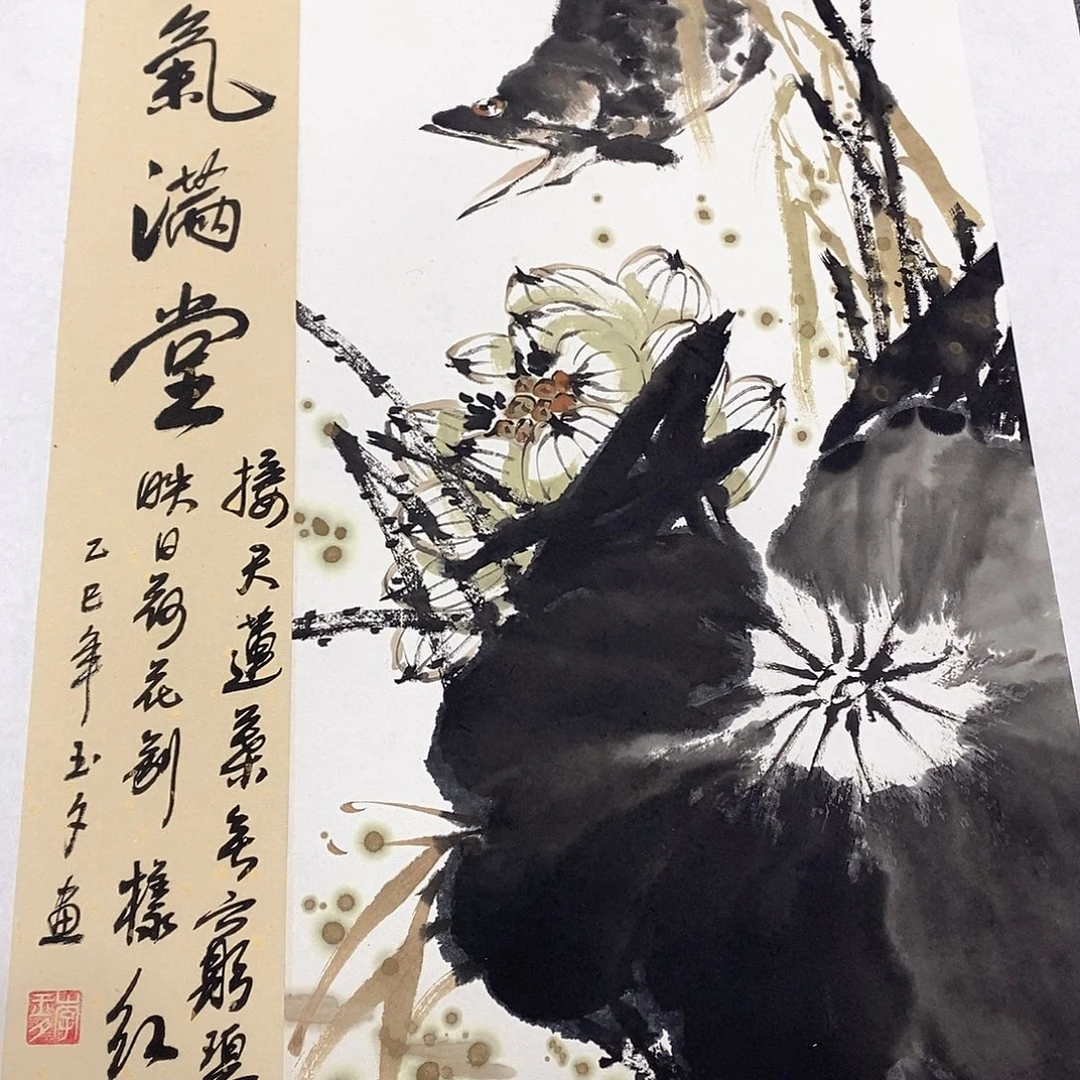 氣满堂
接天蓮葉無窮碧
映日荷花别樣红
乙巳年玉夕畫